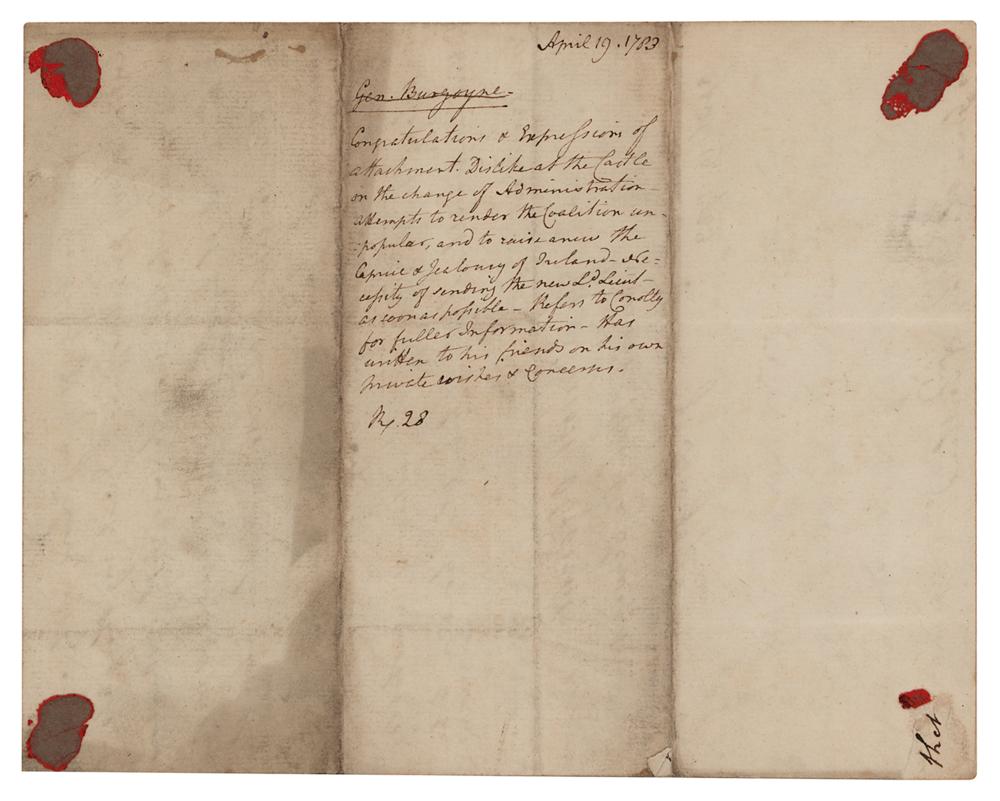 April 19. 1783
Gen. Burgoyne.
Congratulations & Expressions of
attachment. Dislike at the Castle
on the change of Administration –
attempts to render the Coalition un-
:popular, and to raise anew the
Caprice & Jealousy of Ireland – Ne:
cessity of sending the new Ld. Lieut –
as soon as possible – Refers to Conolly
for fuller Information – Has
written to his friends on his own
private wishes & Concerns.
Rx. 28
that